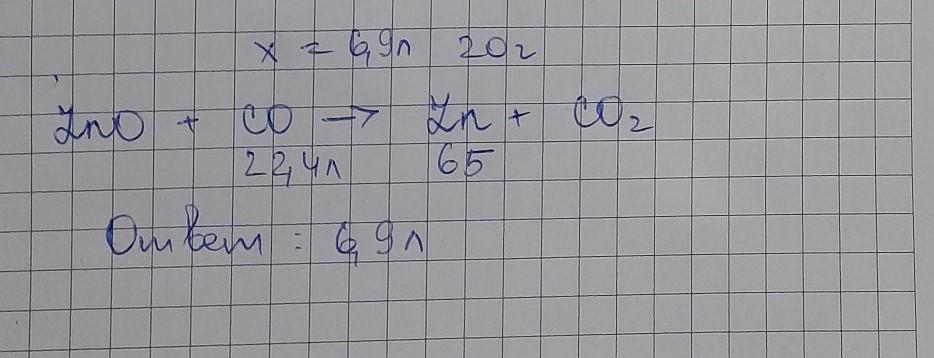 x = 6,9л 20г
ZnO + CO → Zn + CO₂
22,4л 65
Ответ: 6,9л